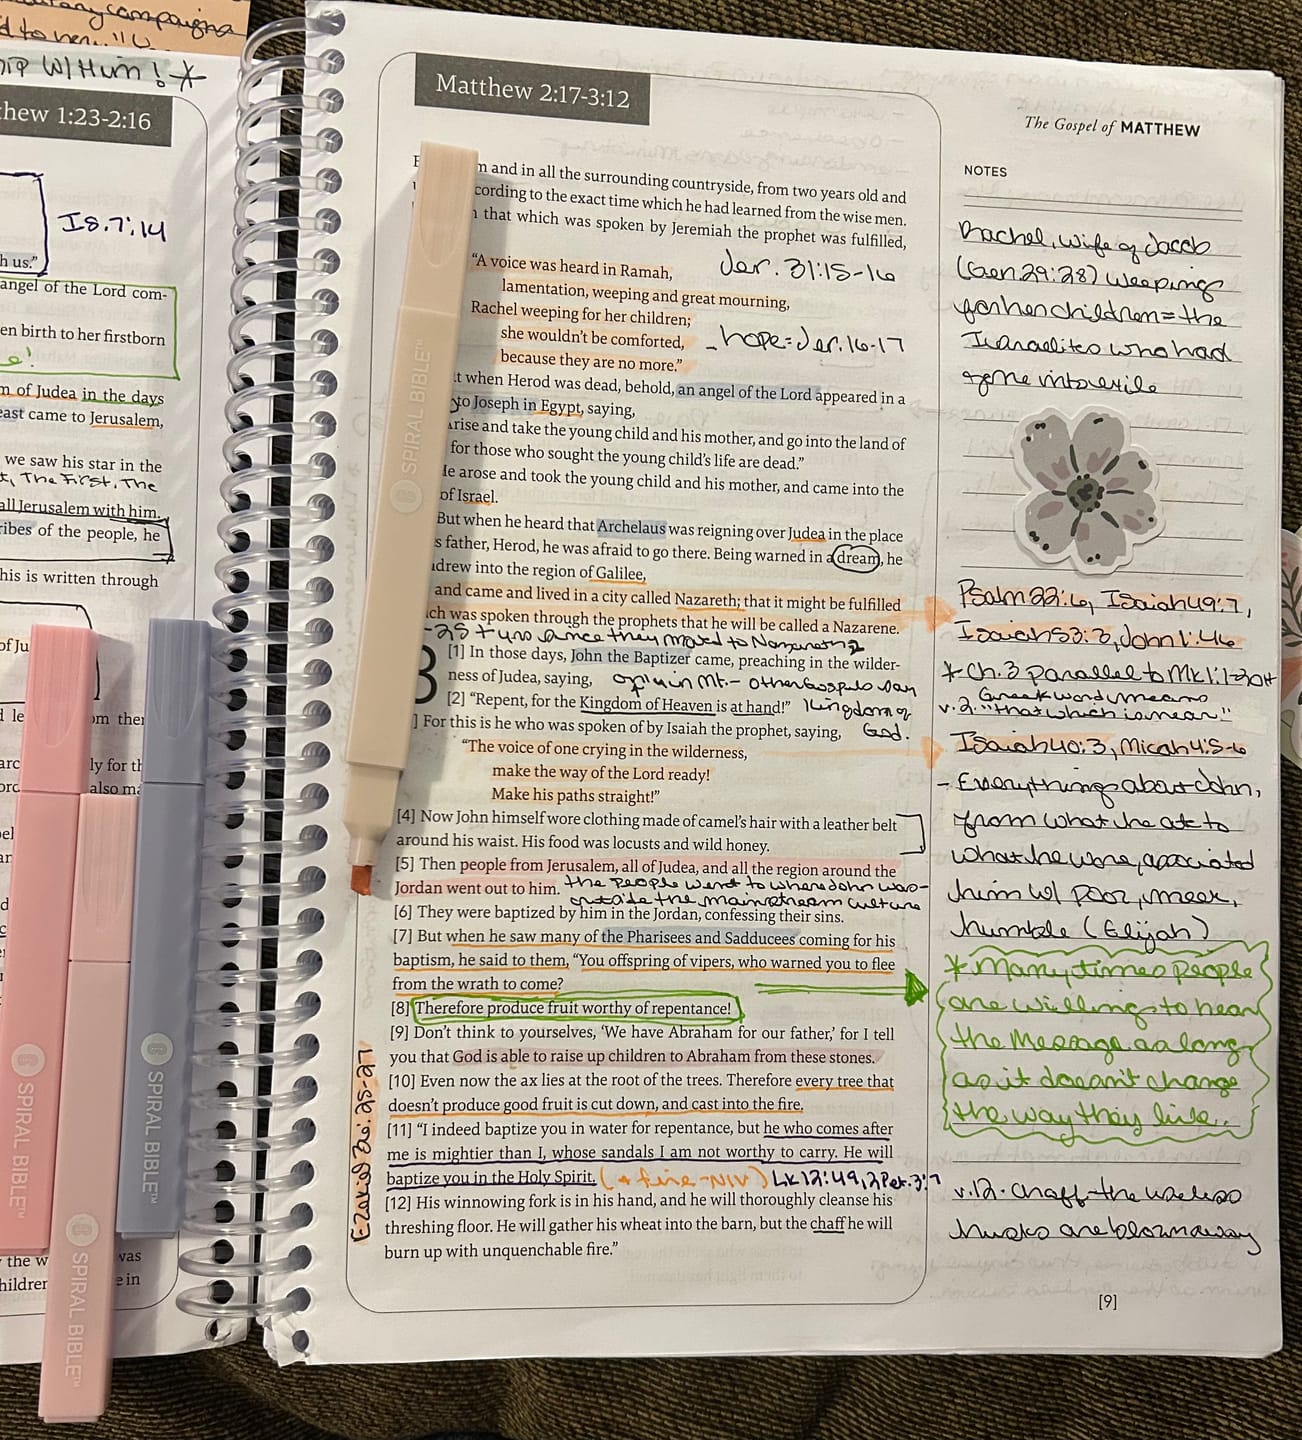 military campaigns
W/ Him! *
hew 1:23-2:16
Is. 7:14
h us."
angel of the Lord com-
en birth to her firstborn
e!
m of Judea in the days
east came to Jerusalem,
we saw his star in the
t, The First, The
all Jerusalem with him.
ribes of the people, he
his is written through
of Ju
d le
om ther
arc
ly for th
also ma
the w
was
hildren
e in
SPIRAL BIBLE™
SPIRAL BIBLE™
SPIRAL BIBLE™
SPIRAL BIBLE™
Matthew 2:17-3:12
m and in all the surrounding countryside, from two years old and
cording to the exact time which he had learned from the wise men.
that which was spoken by Jeremiah the prophet was fulfilled,
"A voice was heard in Ramah, Jer. 31:15-16
lamentation, weeping and great mourning,
Rachel weeping for her children;
she wouldn't be comforted, - hope = Jer. 16-17
because they are no more."
t when Herod was dead, behold, an angel of the Lord appeared in a
to Joseph in Egypt, saying,
rise and take the young child and his mother, and go into the land of
for those who sought the young child's life are dead."
He arose and took the young child and his mother, and came into the
of Israel.
But when he heard that Archelaus was reigning over Judea in the place
s father, Herod, he was afraid to go there. Being warned in a dream, he
drew into the region of Galilee,
and came and lived in a city called Nazareth; that it might be fulfilled
ch was spoken through the prophets that he will be called a Nazarene.
-25+ yrs since they moved to Nazareth
3
[1] In those days, John the Baptizer came, preaching in the wilder-
ness of Judea, saying, only in Mt. - other Gospels say
[2] "Repent, for the Kingdom of Heaven is at hand!" Kingdom of
] For this is he who was spoken of by Isaiah the prophet, saying, God.
"The voice of one crying in the wilderness,
make the way of the Lord ready!
Make his paths straight!"
[4] Now John himself wore clothing made of camel's hair with a leather belt
around his waist. His food was locusts and wild honey.
[5] Then people from Jerusalem, all of Judea, and all the region around the
Jordan went out to him. the people went to where John was-
outside the mainstream culture
[6] They were baptized by him in the Jordan, confessing their sins.
[7] But when he saw many of the Pharisees and Sadducees coming for his
baptism, he said to them, "You offspring of vipers, who warned you to flee
from the wrath to come?
[8] Therefore produce fruit worthy of repentance!
[9] Don't think to yourselves, 'We have Abraham for our father,' for I tell
you that God is able to raise up children to Abraham from these stones.
[10] Even now the ax lies at the root of the trees. Therefore every tree that
doesn't produce good fruit is cut down, and cast into the fire.
[11] "I indeed baptize you in water for repentance, but he who comes after
me is mightier than I, whose sandals I am not worthy to carry. He will
baptize you in the Holy Spirit. (+ fire-NIV) Lk 12:49, 2 Pet. 3:7
[12] His winnowing fork is in his hand, and he will thoroughly cleanse his
threshing floor. He will gather his wheat into the barn, but the chaff he will
burn up with unquenchable fire."
Ezekiel 36:25-27
SPIRAL BIBLE™
The Gospel of MATTHEW
NOTES
Rachel, wife of Jacob
(Gen 29:28) weeping
for her children = the
Israelites who had
gone into exile
Psalm 22:6, Isaiah 49:7,
Isaiah 53:3, John 1:46
* Ch. 3 parallel to Mk 1:1-20+
Greek word means
v.2. "that which is near"
Isaiah 40:3, Micah 4:5-6
- Everything about John,
from what he ate to
what he wore, associated
him w/ poor, meek,
humble (Elijah)
* Many times people
are willing to hear
the Message as long
as it doesn't change
the way they live.
v.12. Chaff-the useless
husks are blown away
[9]